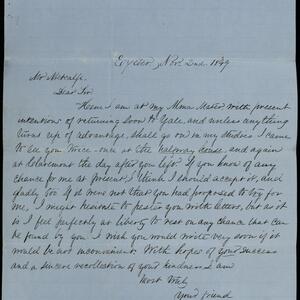 Exeter, Nov. 2nd. 1849
Mr Metcalfe.
Dear Sir
Here I am at my Alma Mater with present
intentions of returning soon to Yale, and unless anything
turns up of advantage, shall go on in my studies. I came
to see you twice - once at the railway house, and again
at Claremont the day after you left. If you know of any
chance for me at present, I think I should accept it, and
gladly too. If it were not that you had proposed to try for
me, I might hesitate to pester you with letters, but as it
is I feel perfectly at liberty to rest on any chance that can
be found by you. I wish you would write very soon if it
would be not inconvenient. With hopes of your success
and a sincere recollection of your kindness I am
Most Truly
Your friend